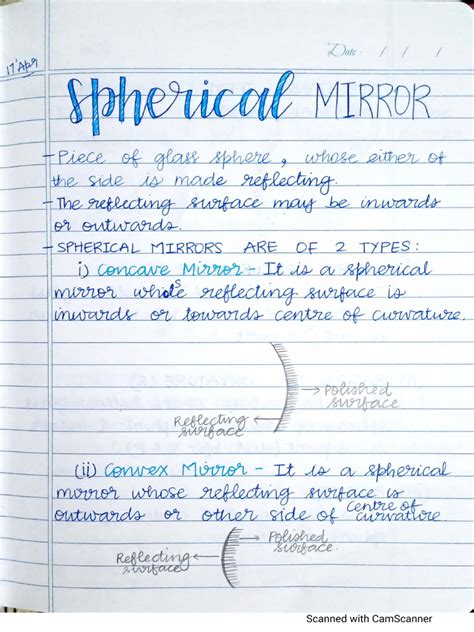 17 Apr
Date: / / /
Spherical MIRROR
- Piece of glass sphere, whose either of
the side is made reflecting.
- The reflecting surface may be inwards
or outwards.
- SPHERICAL MIRRORS ARE OF 2 TYPES:
i) Concave Mirror - It is a spherical
mirror whose reflecting surface is
inwards or towards centre of curvature.
→ Polished
surface
Reflecting ←
surface
(ii) Convex Mirror - It is a spherical
mirror whose reflecting surface is
outwards or other side of centre of
curvature.
Reflecting ←
surface
→ Polished
surface.
Scanned with CamScanner